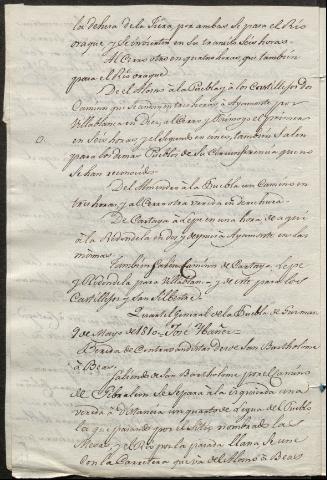 la dehesa de la Tiesa, por ambas se pasa el Rio
oraque y se invierten en su transito Seis horas.
Al Cerro otro en quatro horas, que tambien
pasa el Rio oraque
De el Alosno à la Puebla y à los Castillejos dos
Caminos que se andan en tres horas; à Ayamonte por
Villablanca en Diez, al Cerro y Paimogo el primero
en Seis horas y el segundo en cinco, tambien salen
para los demas Pueblos de su Circunferencia que no
se han reconocido.
Del Almendro à la Puebla un Camino en
tres horas, y al Cerro otra vereda en derechura.
De Cartaya à Lepe en una hora, de aqui
à la Redondela en dos y de esta à Ayamonte en las
mismas.
Tambien salen Caminos de Cartaya, Lepe
y Redondela para Villablanca y de este para los
Castillejos y San Silbestre.
Quartel General de la Puebla de Guzman
9 de Mayo de 1810 = José Ibañez =
Vereda de Contrabandistas desde San Bartholome
à Beas
Saliendo de San Bartholome por el Camino
de Gibraleon se Separa à la izquierda una
vereda à distancia un quarto de legua del Pueblo
la que pasando por el Sitio nombrado las
Mesas y el Rio por la parada llana se une
con la Carretera que va del Alosno à Beas